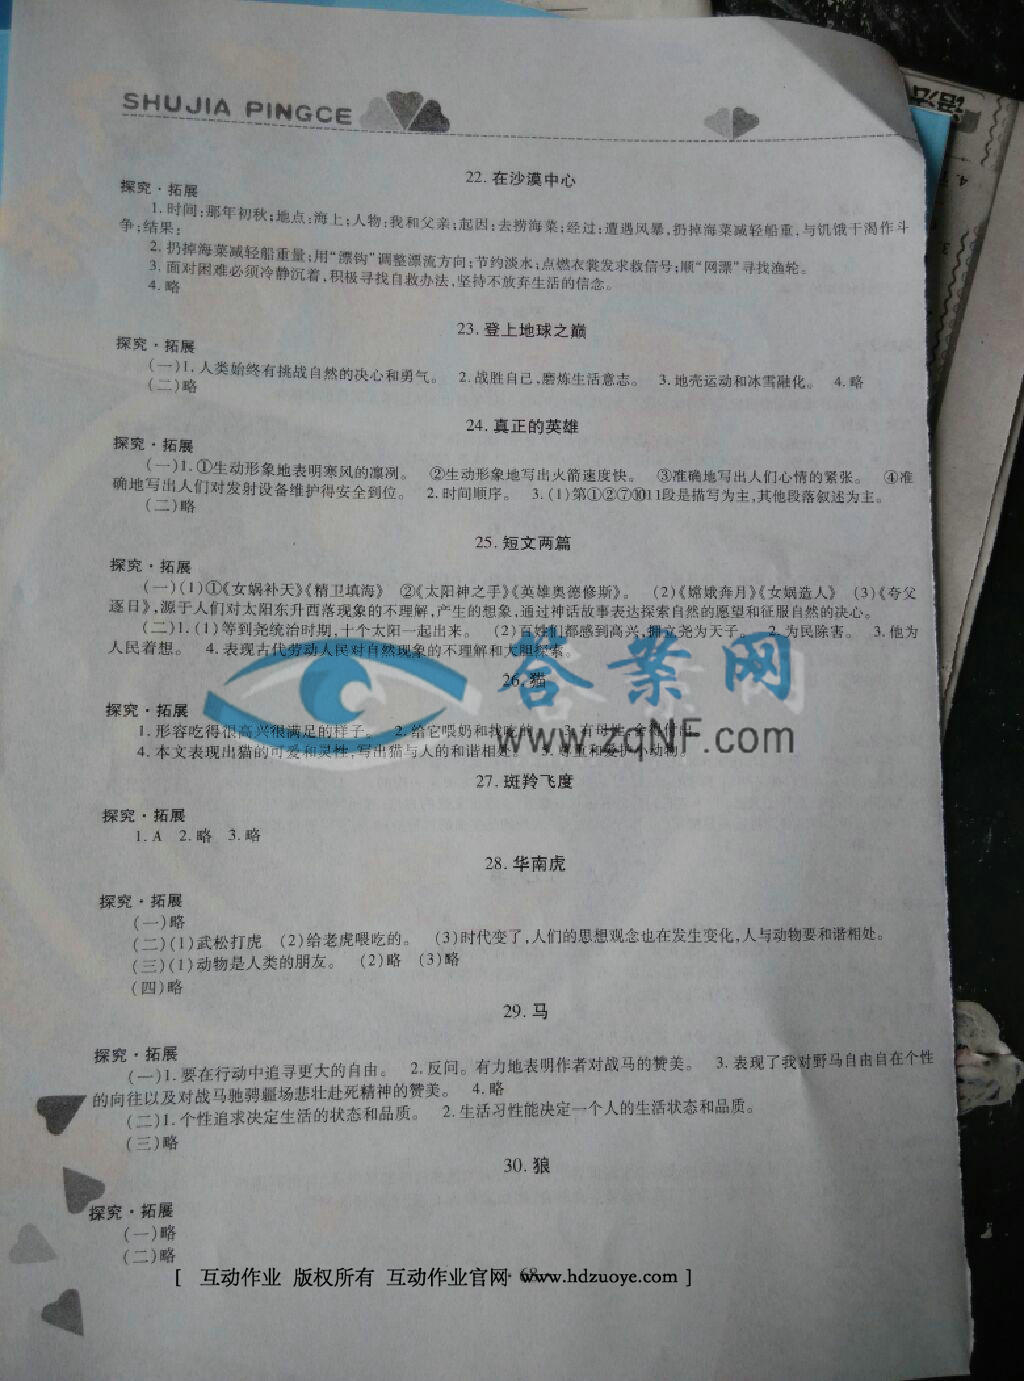 SHUJIA PINGCE
22. 在沙漠中心
探究·拓展
1. 时间:那年初秋;地点:海上;人物:我和父亲;起因:去捞海菜;经过:遭遇风暴,扔掉海菜减轻船重,与饥饿干渴作斗
争;结果:
2. 扔掉海菜减轻船重量;用“漂钩”调整漂流方向;节约淡水;点燃衣裳发求救信号;顺“网漂”寻找渔轮。
3. 面对困难必须冷静沉着,积极寻找自救办法,坚持不放弃生活的信念。
4. 略
23. 登上地球之巅
探究·拓展
(一)1. 人类始终有挑战自然的决心和勇气。 2. 战胜自己,磨炼生活意志。 3. 地壳运动和冰雪融化。 4. 略
(二)略
24. 真正的英雄
探究·拓展
(一)1. ①生动形象地表明寒风的凛冽。 ②生动形象地写出火箭速度快。 ③准确地写出人们心情的紧张。 ④准
确地写出人们对发射设备维护得安全到位。 2. 时间顺序。 3. (1)第①②⑦⑩11段是描写为主,其他段落叙述为主。
(二)略
25. 短文两篇
探究·拓展
(一)(1)①《女娲补天》《精卫填海》 ②《太阳神之手》《英雄奥德修斯》。 (2)《嫦娥奔月》《女娲造人》 (3)《夸父
逐日》,源于人们对太阳东升西落现象的不理解,产生的想象,通过神话故事表达探索自然的愿望和征服自然的决心。
(二)1. (1)等到尧统治时期,十个太阳一起出来。 (2)百姓们都感到高兴,拥立尧为天子。 2. 为民除害。 3. 他为
人民着想。 4. 表现古代劳动人民对自然现象的不理解和大胆探索。
答案网
26. 猫
探究·拓展
1. 形容吃得很高兴很满足的样子。 2. 给它喂奶和找吃的 3. 有母性
www.zqNF.com
4. 本文表现出猫的可爱和灵性,写出猫与人的和谐相处。 5. 尊重和爱护小动物。
27. 斑羚飞度
探究·拓展
1. A 2. 略 3. 略
28. 华南虎
探究·拓展
(一)略
(二)(1)武松打虎 (2)给老虎喂吃的。 (3)时代变了,人们的思想观念也在发生变化,人与动物要和谐相处。
(三)(1)动物是人类的朋友。 (2)略 (3)略
(四)略
29. 马
探究·拓展
(一)1. 要在行动中追寻更大的自由。 2. 反问。有力地表明作者对战马的赞美。 3. 表现了我对野马自由自在个性
的向往以及对战马驰骋疆场悲壮赴死精神的赞美。 4. 略
(二)1. 个性追求决定生活的状态和品质。 2. 生活习性能决定一个人的生活状态和品质。
(三)略
30. 狼
探究·拓展
(一)略
(二)略
68
[ 互动作业 版权所有 互动作业官网 www.hdzuoye.com ]